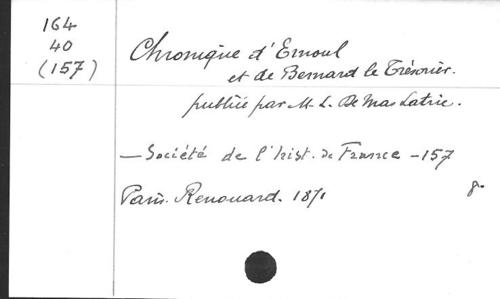 164
40
(157)
Chronique d'Ernoul
et de Bernard le Trésorier.
publiée par M. L. De Mas Latrie.
— Société de l'hist. de France - 157
Paris. Renouard. 1871
8°